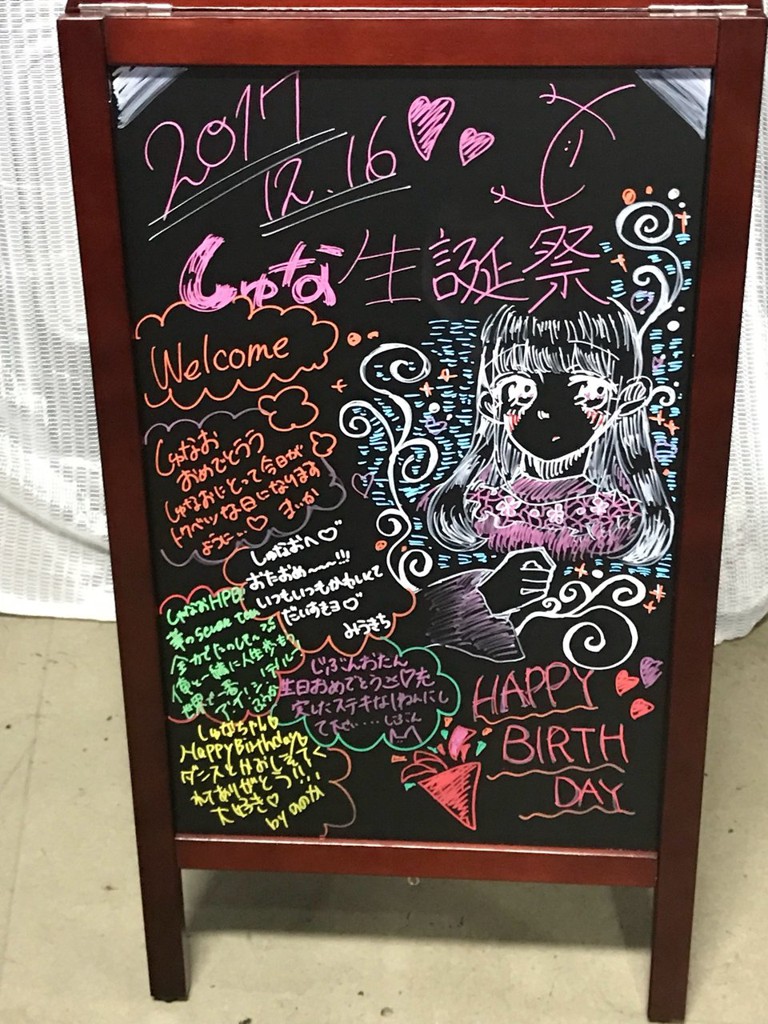 2017
12.16
しゅな生誕祭
Welcome
しゅなお
おめでとうう
しゅなおにとって今日が
トクベツな日になります
ように…♡ まいか
しゅなおへ♡
おたおめ〜〜〜!!!
いつもいつもかわいくて
だいすきヨ♡
みうきち
しゅなおHPB!
じぶんおたん
生日おめでとう
実したステキな1ねんにし
て下せい… じぶん
しゅなちゃん♡
Happy Birthday
ダンスとかおしえてく
れてありがとう!!!
大好き♡
by ののか
HAPPY
BIRTH
DAY